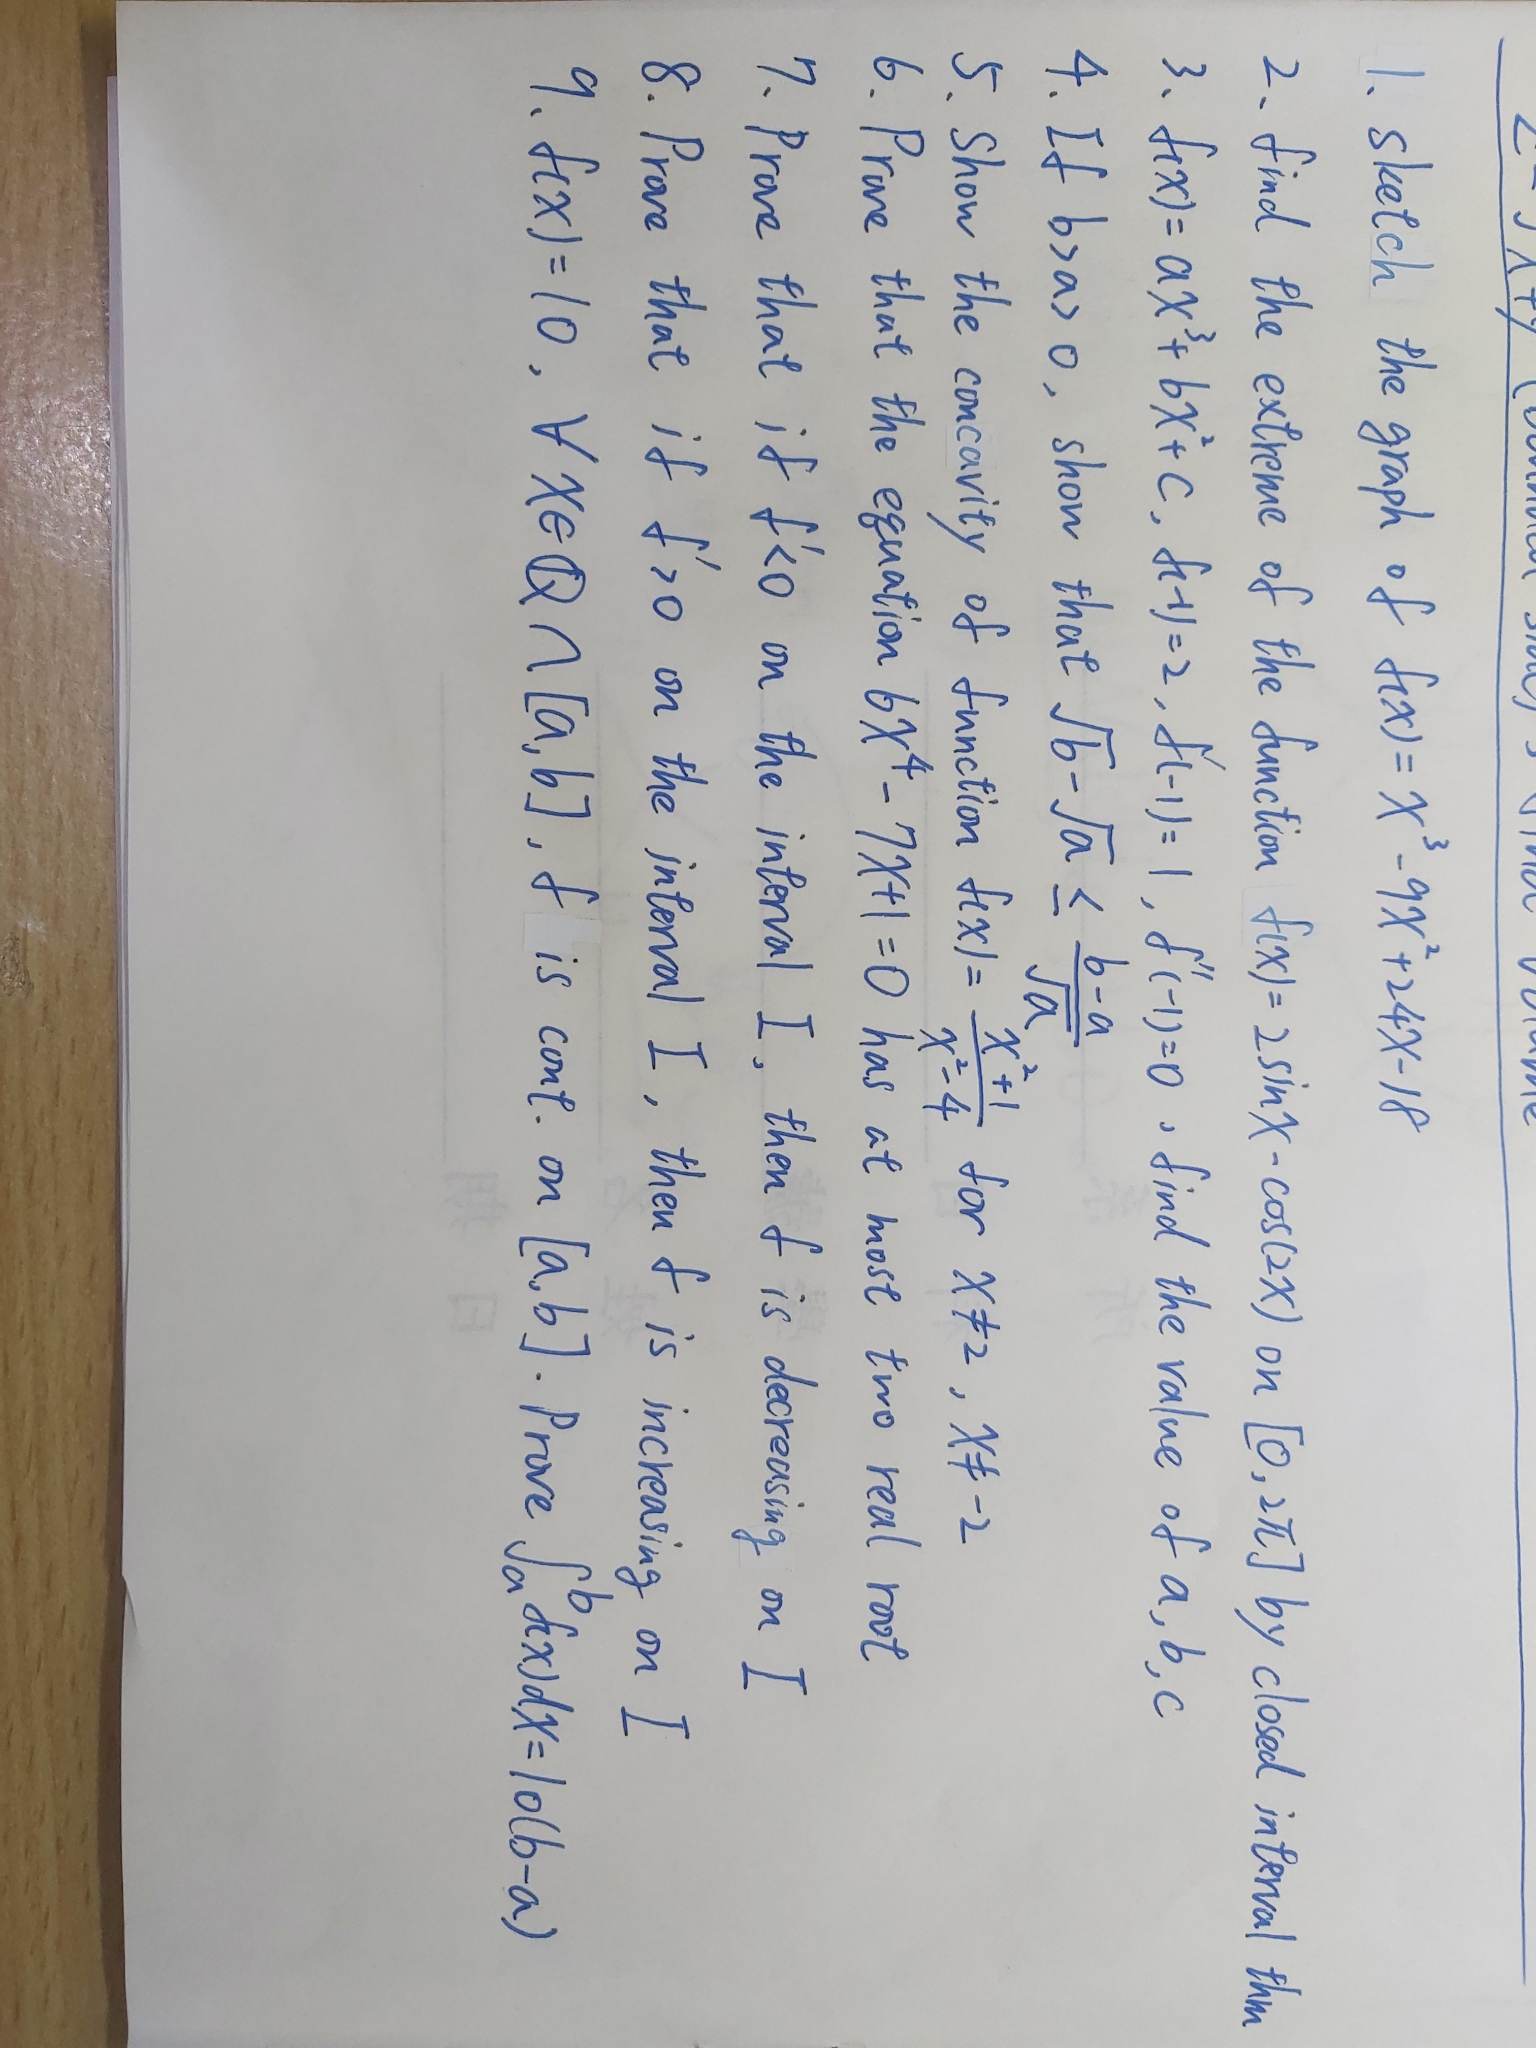 1. sketch the graph of f(x) = x³-9x²+24x-18
2. find the extreme of the function f(x) = 2sinx - cos(2x) on [0, 2π] by closed interval thm
3. f(x) = ax³+bx²+c, f(-1)=2, f'(-1)=1, f''(-1)=0, find the value of a, b, c
4. If b>a>0, show that √b-√a ≤ (b-a)/√a
5. Show the concavity of function f(x) = (x²+1)/(x²-4) for x≠2, x≠-2
6. Prove that the equation 6x⁴-7x+1=0 has at most two real root
7. Prove that if f'<0 on the interval I, then f is decreasing on I
8. Prove that if f'>0 on the interval I, then f is increasing on I
9. f(x)=10, ∀x∈ℚ∩[a,b], f is cont. on [a,b]. Prove ∫ₐᵇ f(x)dx=10(b-a)
所 系
學 號
姓 名
日 期